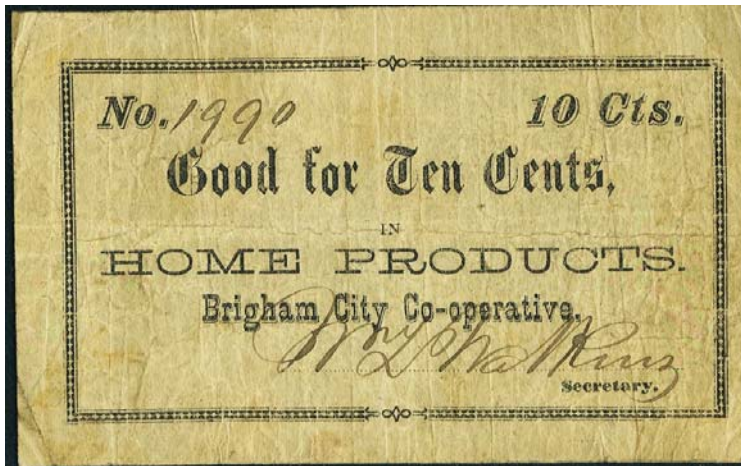 No. 1990 10 Cts.
Good for Ten Cents,
IN
HOME PRODUCTS.
Brigham City Co-operative.
Wm L Watkins
Secretary.